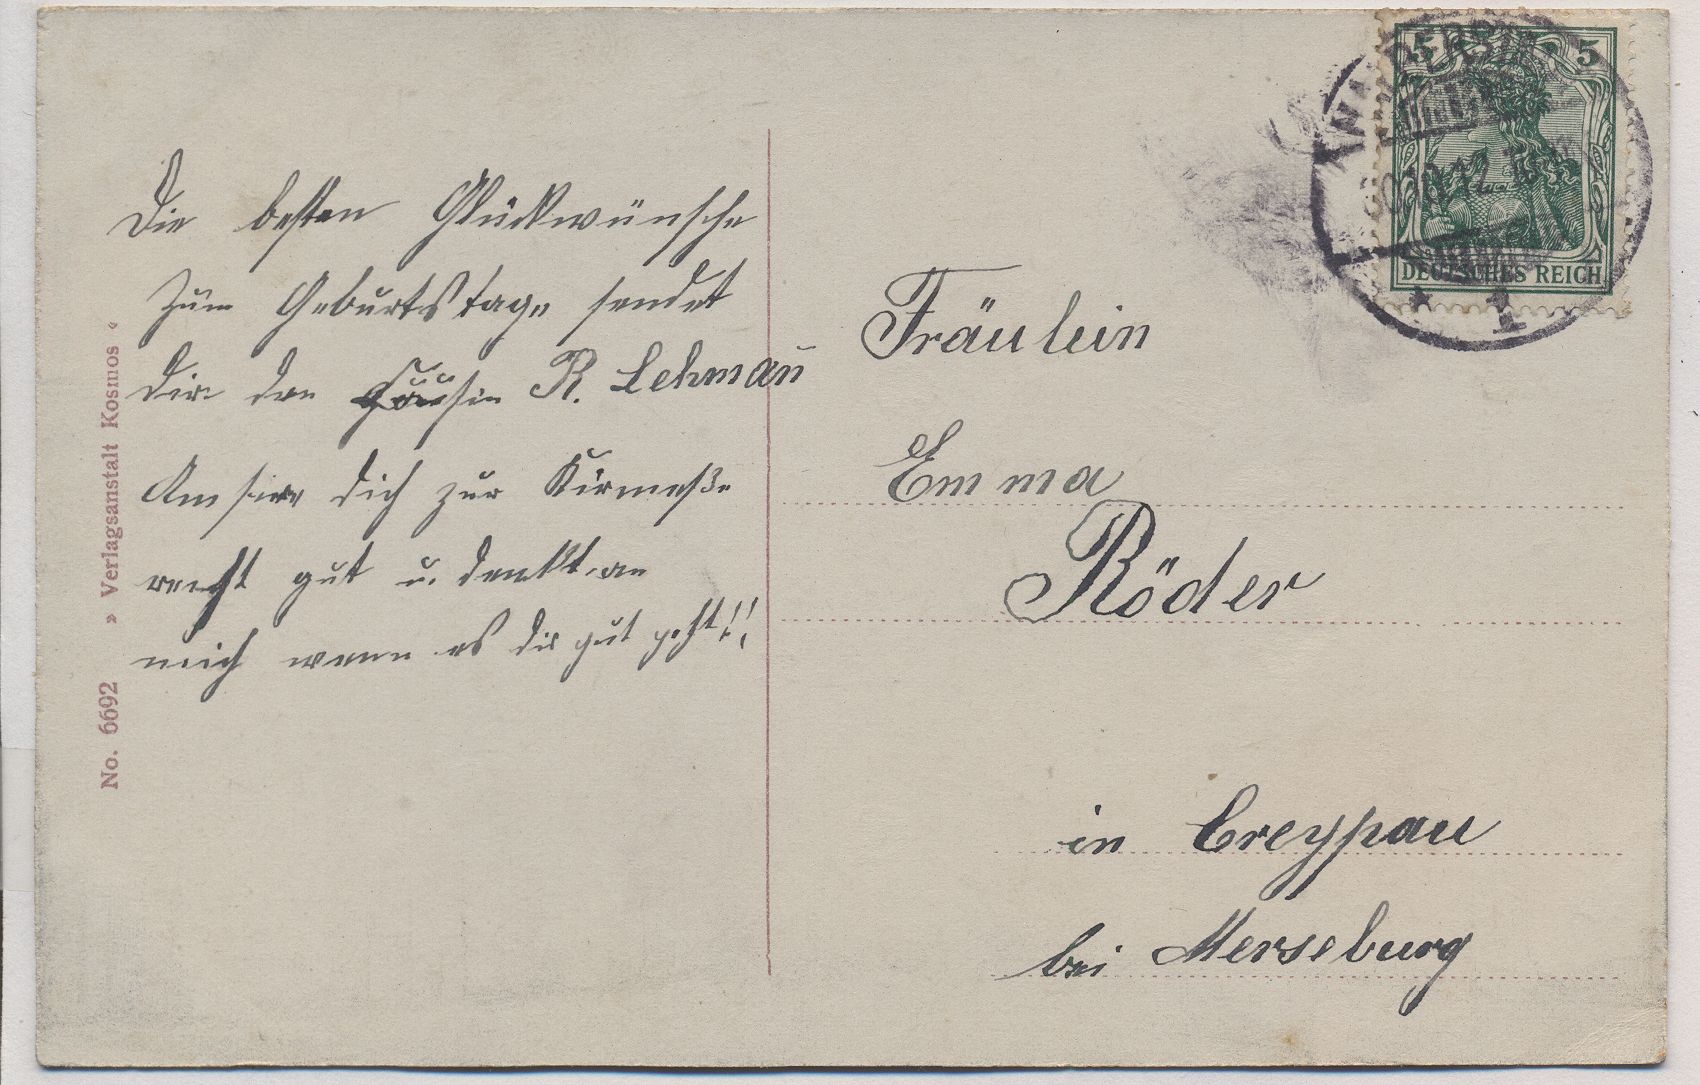 Die besten Glückwünsche
zum Geburtstage sendet
Dir den R. Lehman̄
Amsire dich zur Kirmeße
recht gut u. denkt an
mich wenn es dir gut geht!!
Fräulein
Emma
Röder
in Creypau
bei Merseburg
No. 6692 » Verlagsanstalt Kosmos «
5 5
DEUTSCHES REICH
10.12